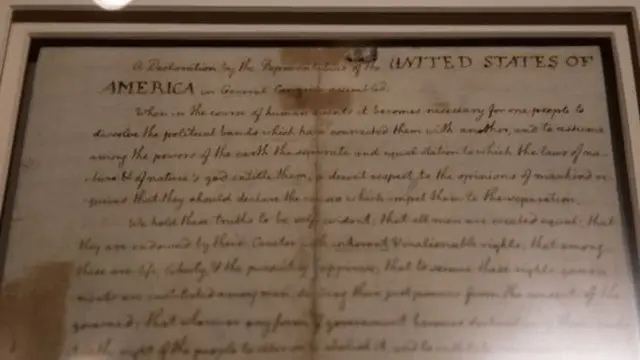 A Declaration by the Representatives of the UNITED STATES OF
AMERICA in General Congress assembled.
When in the course of human events it becomes necessary for one people to
dissolve the political bands which have connected them with another, and to assume
among the powers of the earth the separate and equal station to which the laws of na-
-ture & of nature's god entitle them, a decent respect to the opinions of mankind re-
-quires that they should declare the causes which impel them to the separation.
We hold these truths to be self evident; that all men are created equal; that
they are endowed by their Creator with inherent & inalienable rights; that among
these are life, liberty, & the pursuit of happiness; that to secure these rights, govern-
-ments are instituted among men, deriving their just powers from the consent of the
governed; that whenever any form of government becomes destructive
the right of the people to alter or to abolish it, and to institute